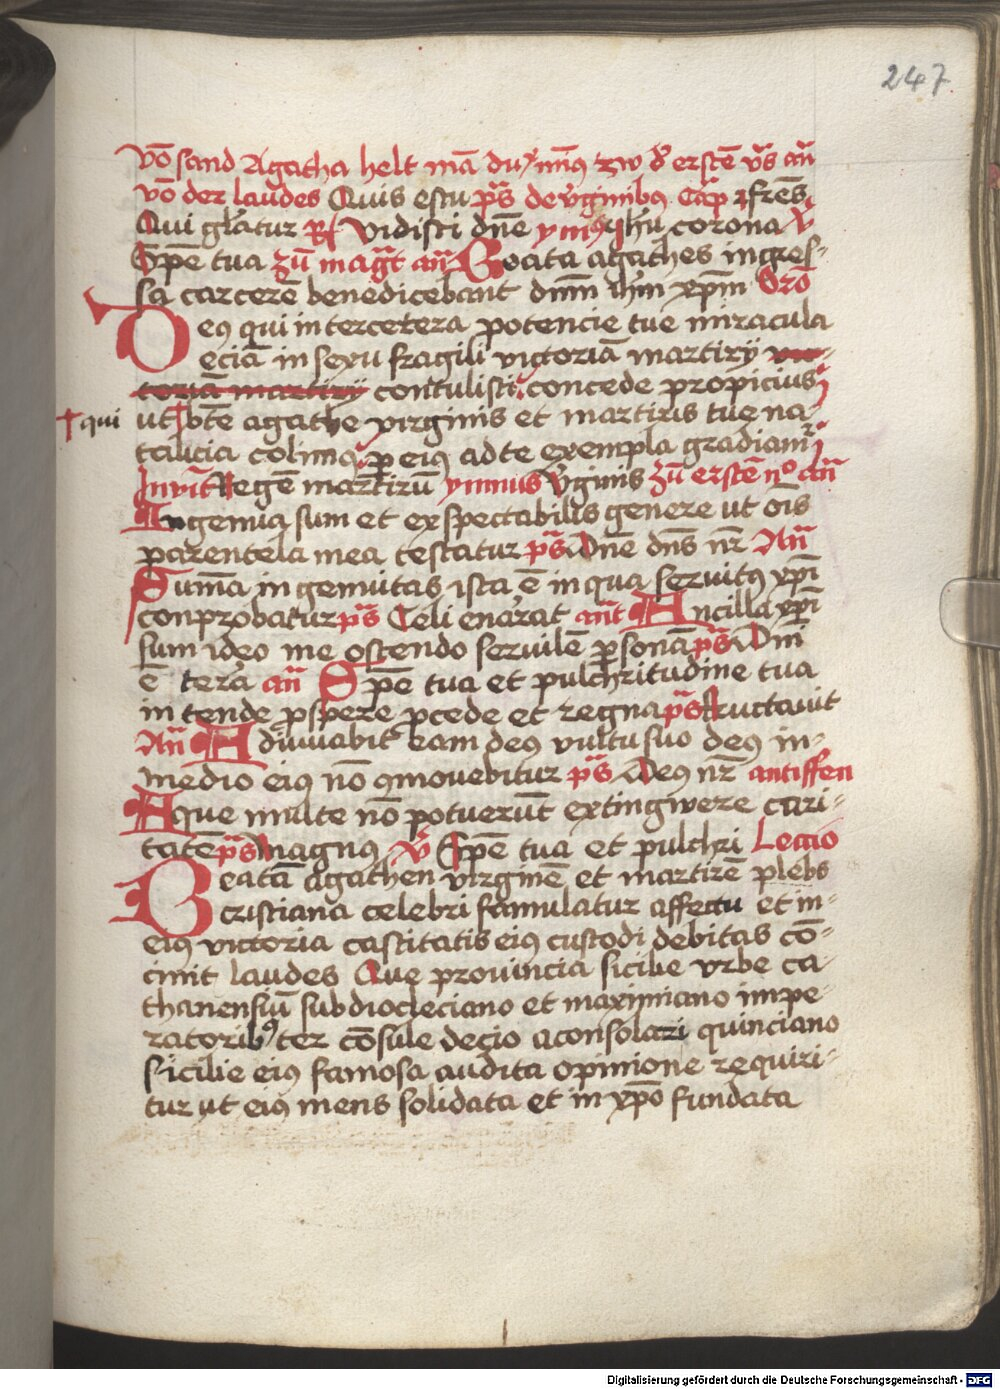 247
võ sand Agatha helt mã du
võ der laudes Quis es tu ps̃ de v̾ginibus Cap̃ Fres̃
Qui gl̾atur R Vidisti dñe ymꝰ ihũ corona v̾
Spẽ tua zũ mag̃t añ Beata agathes ingres-
sa carcerẽ benedicebant dñm ihm xp̃m Oro᷉
Deꝰ qui inter cetera potencie tue miracula
eciã in sexu fragili victoriã martirÿ vic-
toriã martirÿ contulisti concede propicius
ut bt̃e agathe virginis et martiris tue na-
† qui
talicia colimꝰ ꝑ eiꝰ ad te exempla gradiamr
Invit̃ Regẽ martirũ ymnus v̾ginis zũ erstẽ n° añ
Ingenua sum et expectabilis genere ut oĩs
parentela mea testatur ps̃ Dñe dñs nr̃ Añ
Summa ingenuitas ista ẽ in qua seruitꝰ xp̃i
conprobatur ps̃ Celi enarrat añt Ancilla xp̃i
sum ideo me ostendo seruilẽ ꝑsonã ps̃ Dñi
ẽ terra añ Spẽ tua et pulchritudine tua
intende prospere procede et regna ps̃ Eructauit
Añ Adiuuabit eam deꝰ vultu suo deꝰ in-
medio eiꝰ nõ ꝯmouebitur ps̃ Deꝰ nr̃ antiffen
Aque multe nõ potuerũt extingwere cari-
tatẽ ps̃ Magnꝰ v̾ Spẽ tua et pulchri Leccio
Beatã agathen virginẽ et martirẽ plebs
cristiana celebri famulatur affectu et in-
eiꝰ victoria castitatis eiꝰ custodi debitas cõ-
cinit laudes Que prouincia sicilie vrbe ca-
thanensiũ sub diocleciano et maximiano impe-
ratoribꝰ ter cõsule decio a consolari quinciano
sicilie eiꝰ famosa audita opinione requiri-
tur ut eiꝰ mens solidata et in xp̃o fundata
Digitalisierung gefördert durch die Deutsche Forschungsgemeinschaft - DFG